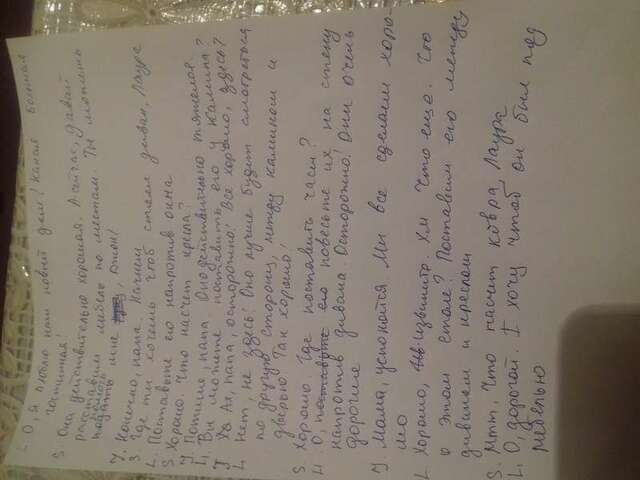 L. О, я люблю наш новый дом! Какая большая
гостинная!
S. Она действительно хорошая. А сейчас, давай
расставим мебель по местам. Ты можешь
помочь
подать мне, Джон!
J. Конечно, папа. Начнем.
S. Где ты хочешь чтоб стоял диван, Лаура
L. Поставьте его напротив окна
S. Хорошо. Что насчет кресла?
J. Потише, папа. Оно действительно тяжелое.
L. Вы можете поставить его у камина?
J. Ах, папа, осторожно! Все хорошо, здесь?
L. Нет, не здесь! Оно лучше будет смотреться
по другую сторону, между камином и
дверью. Так хорошо!
S. Хорошо. Где поставить часы?
L. О, поставьте его повесьте их на стену
напротив дивана. Осторожно! Они очень
дорогие
J. Мама, успокойся Мы все сделаем хоро-
шо
L. Хорошо, извините. Хм Что еще. Что
о этом столе? Поставим его между
диваном и креслом
S. Мтт, Что насчет ковра, Лаура
L. О, дорогой. I хочу чтоб он был под
мебелью